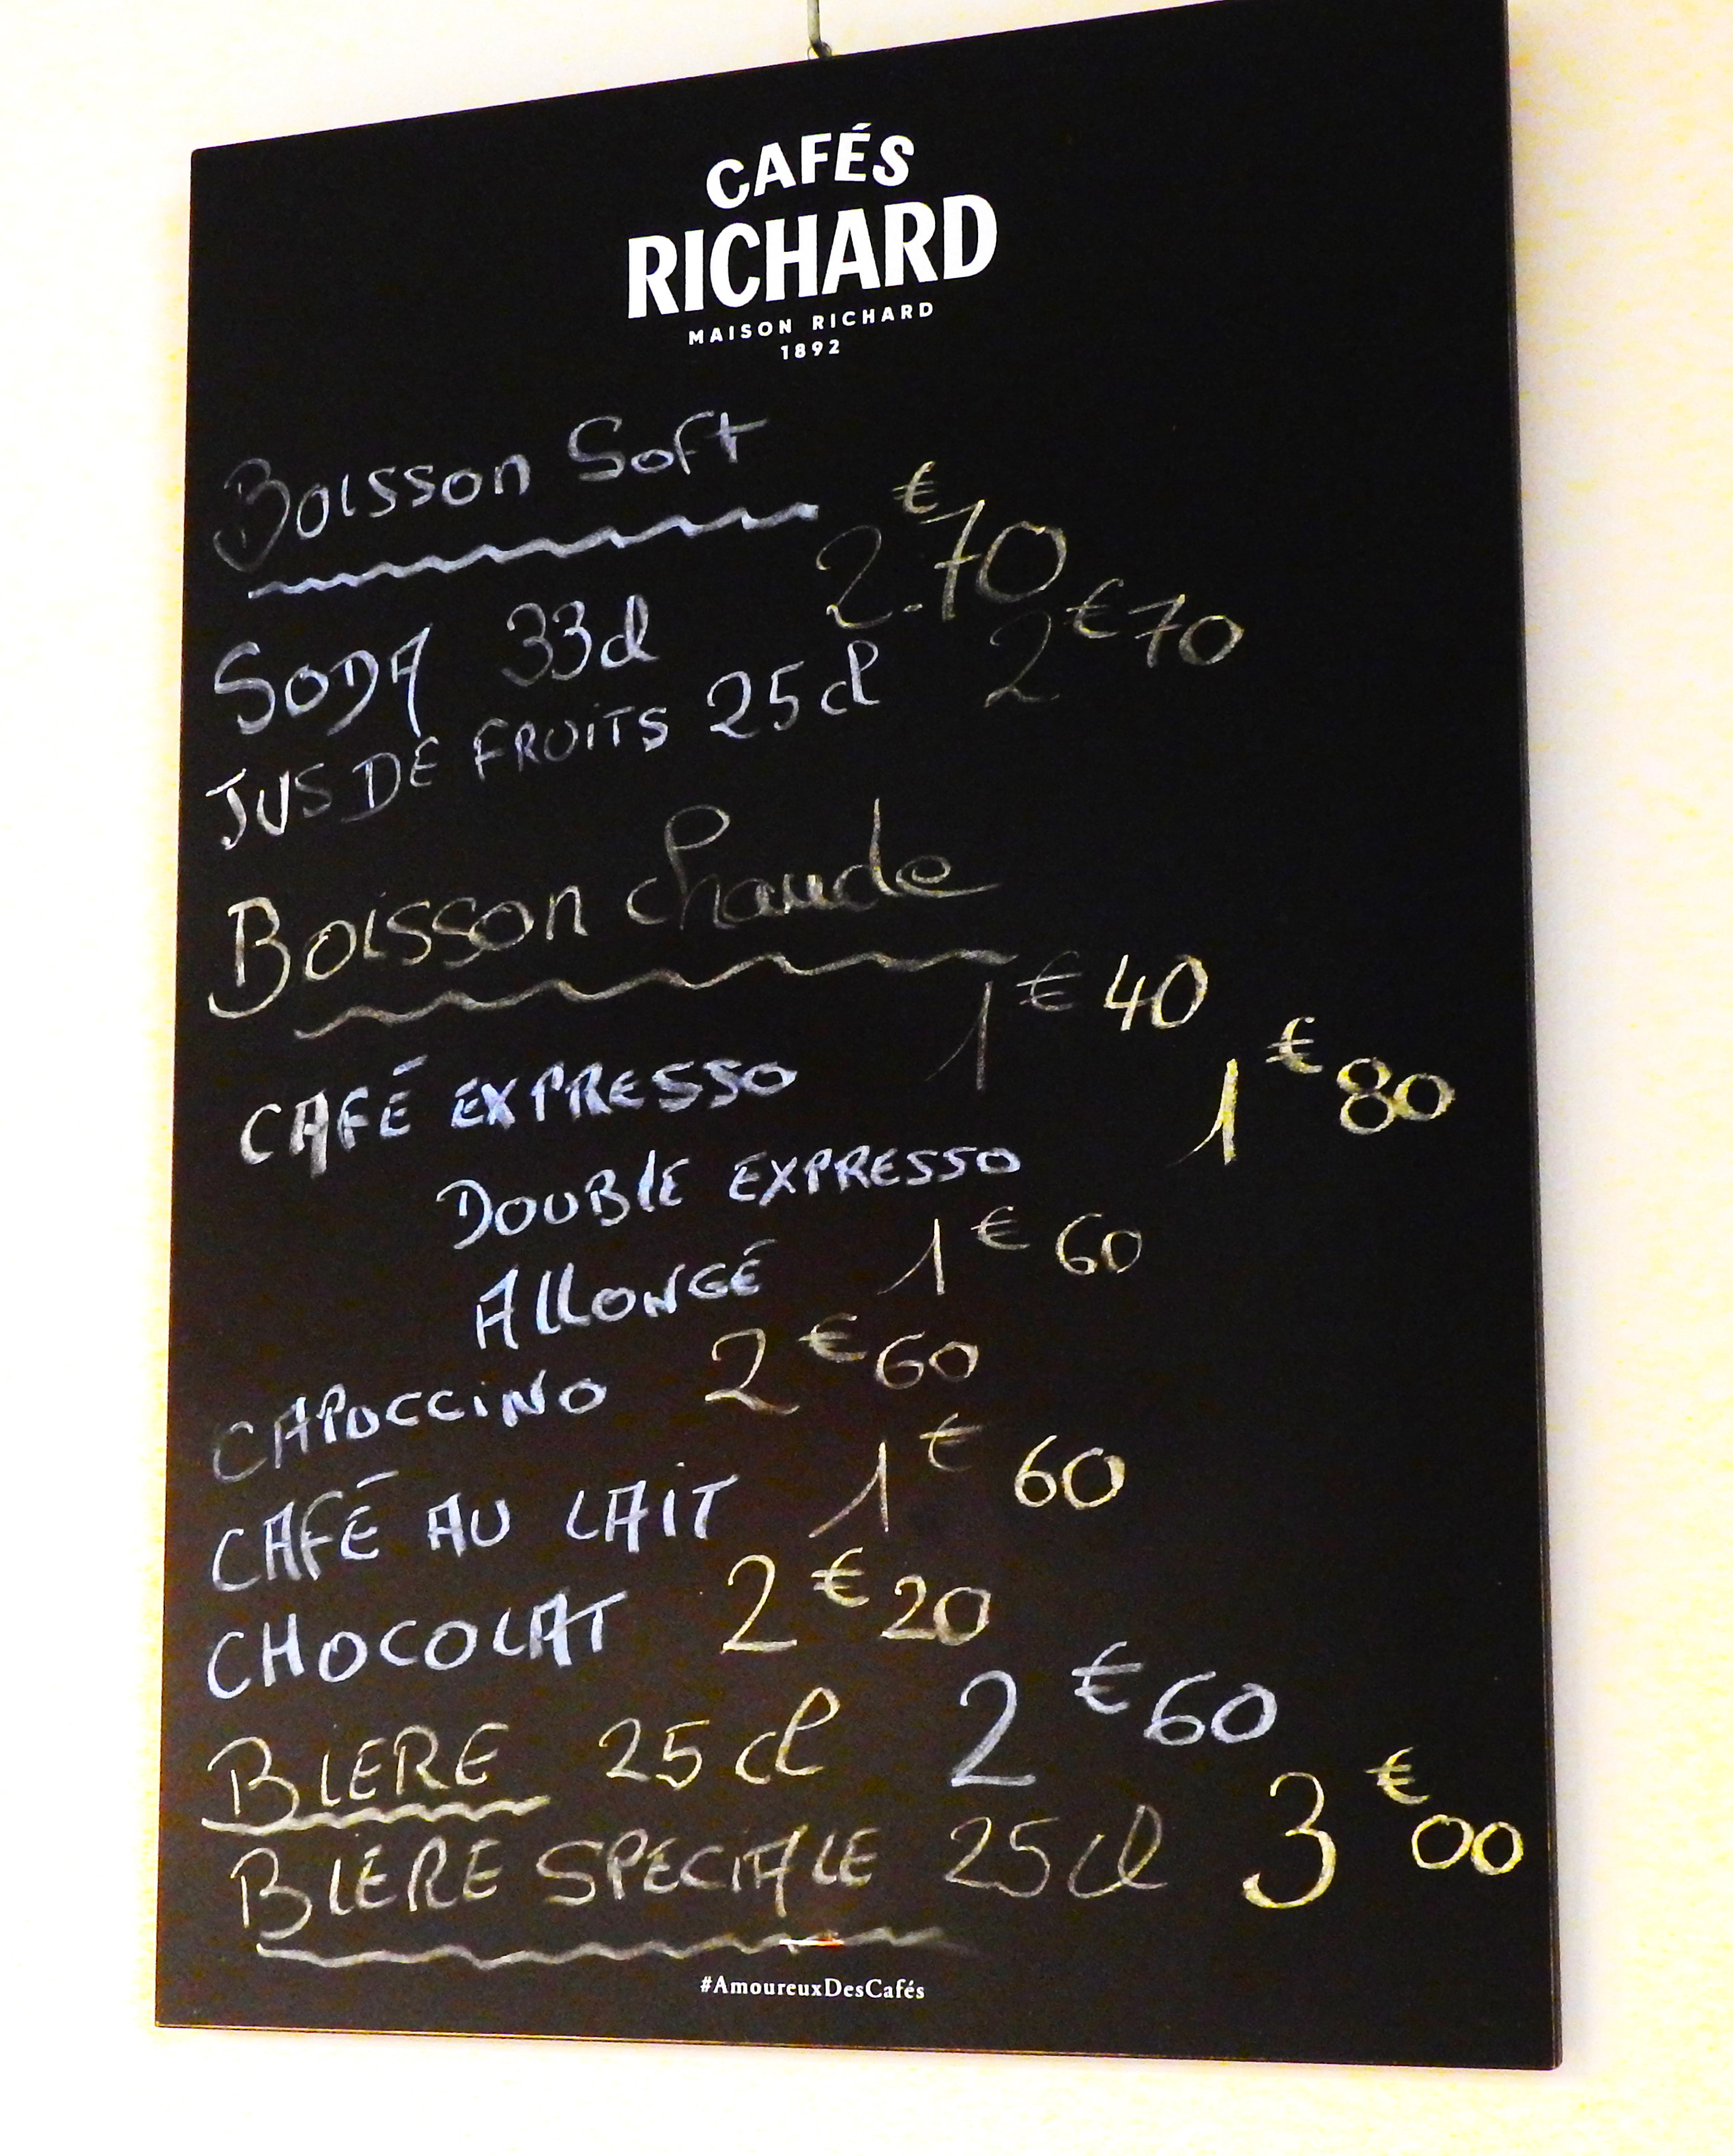 CAFÉS
RICHARD
MAISON RICHARD
1892
Boisson Soft
SODA 33cl 2.€70
JUS DE FRUITS 25cl 2€70
Boisson chaude
CAFÉ EXPRESSO 1€40
DOUBLE EXPRESSO 1€80
ALLONGÉ 1€60
CAPUCCINO 2€60
CAFÉ AU LAIT 1€60
CHOCOLAT 2€20
BIERE 25cl 2€60
BIERE SPECIALE 25cl 3€00
#AmoureuxDesCafés